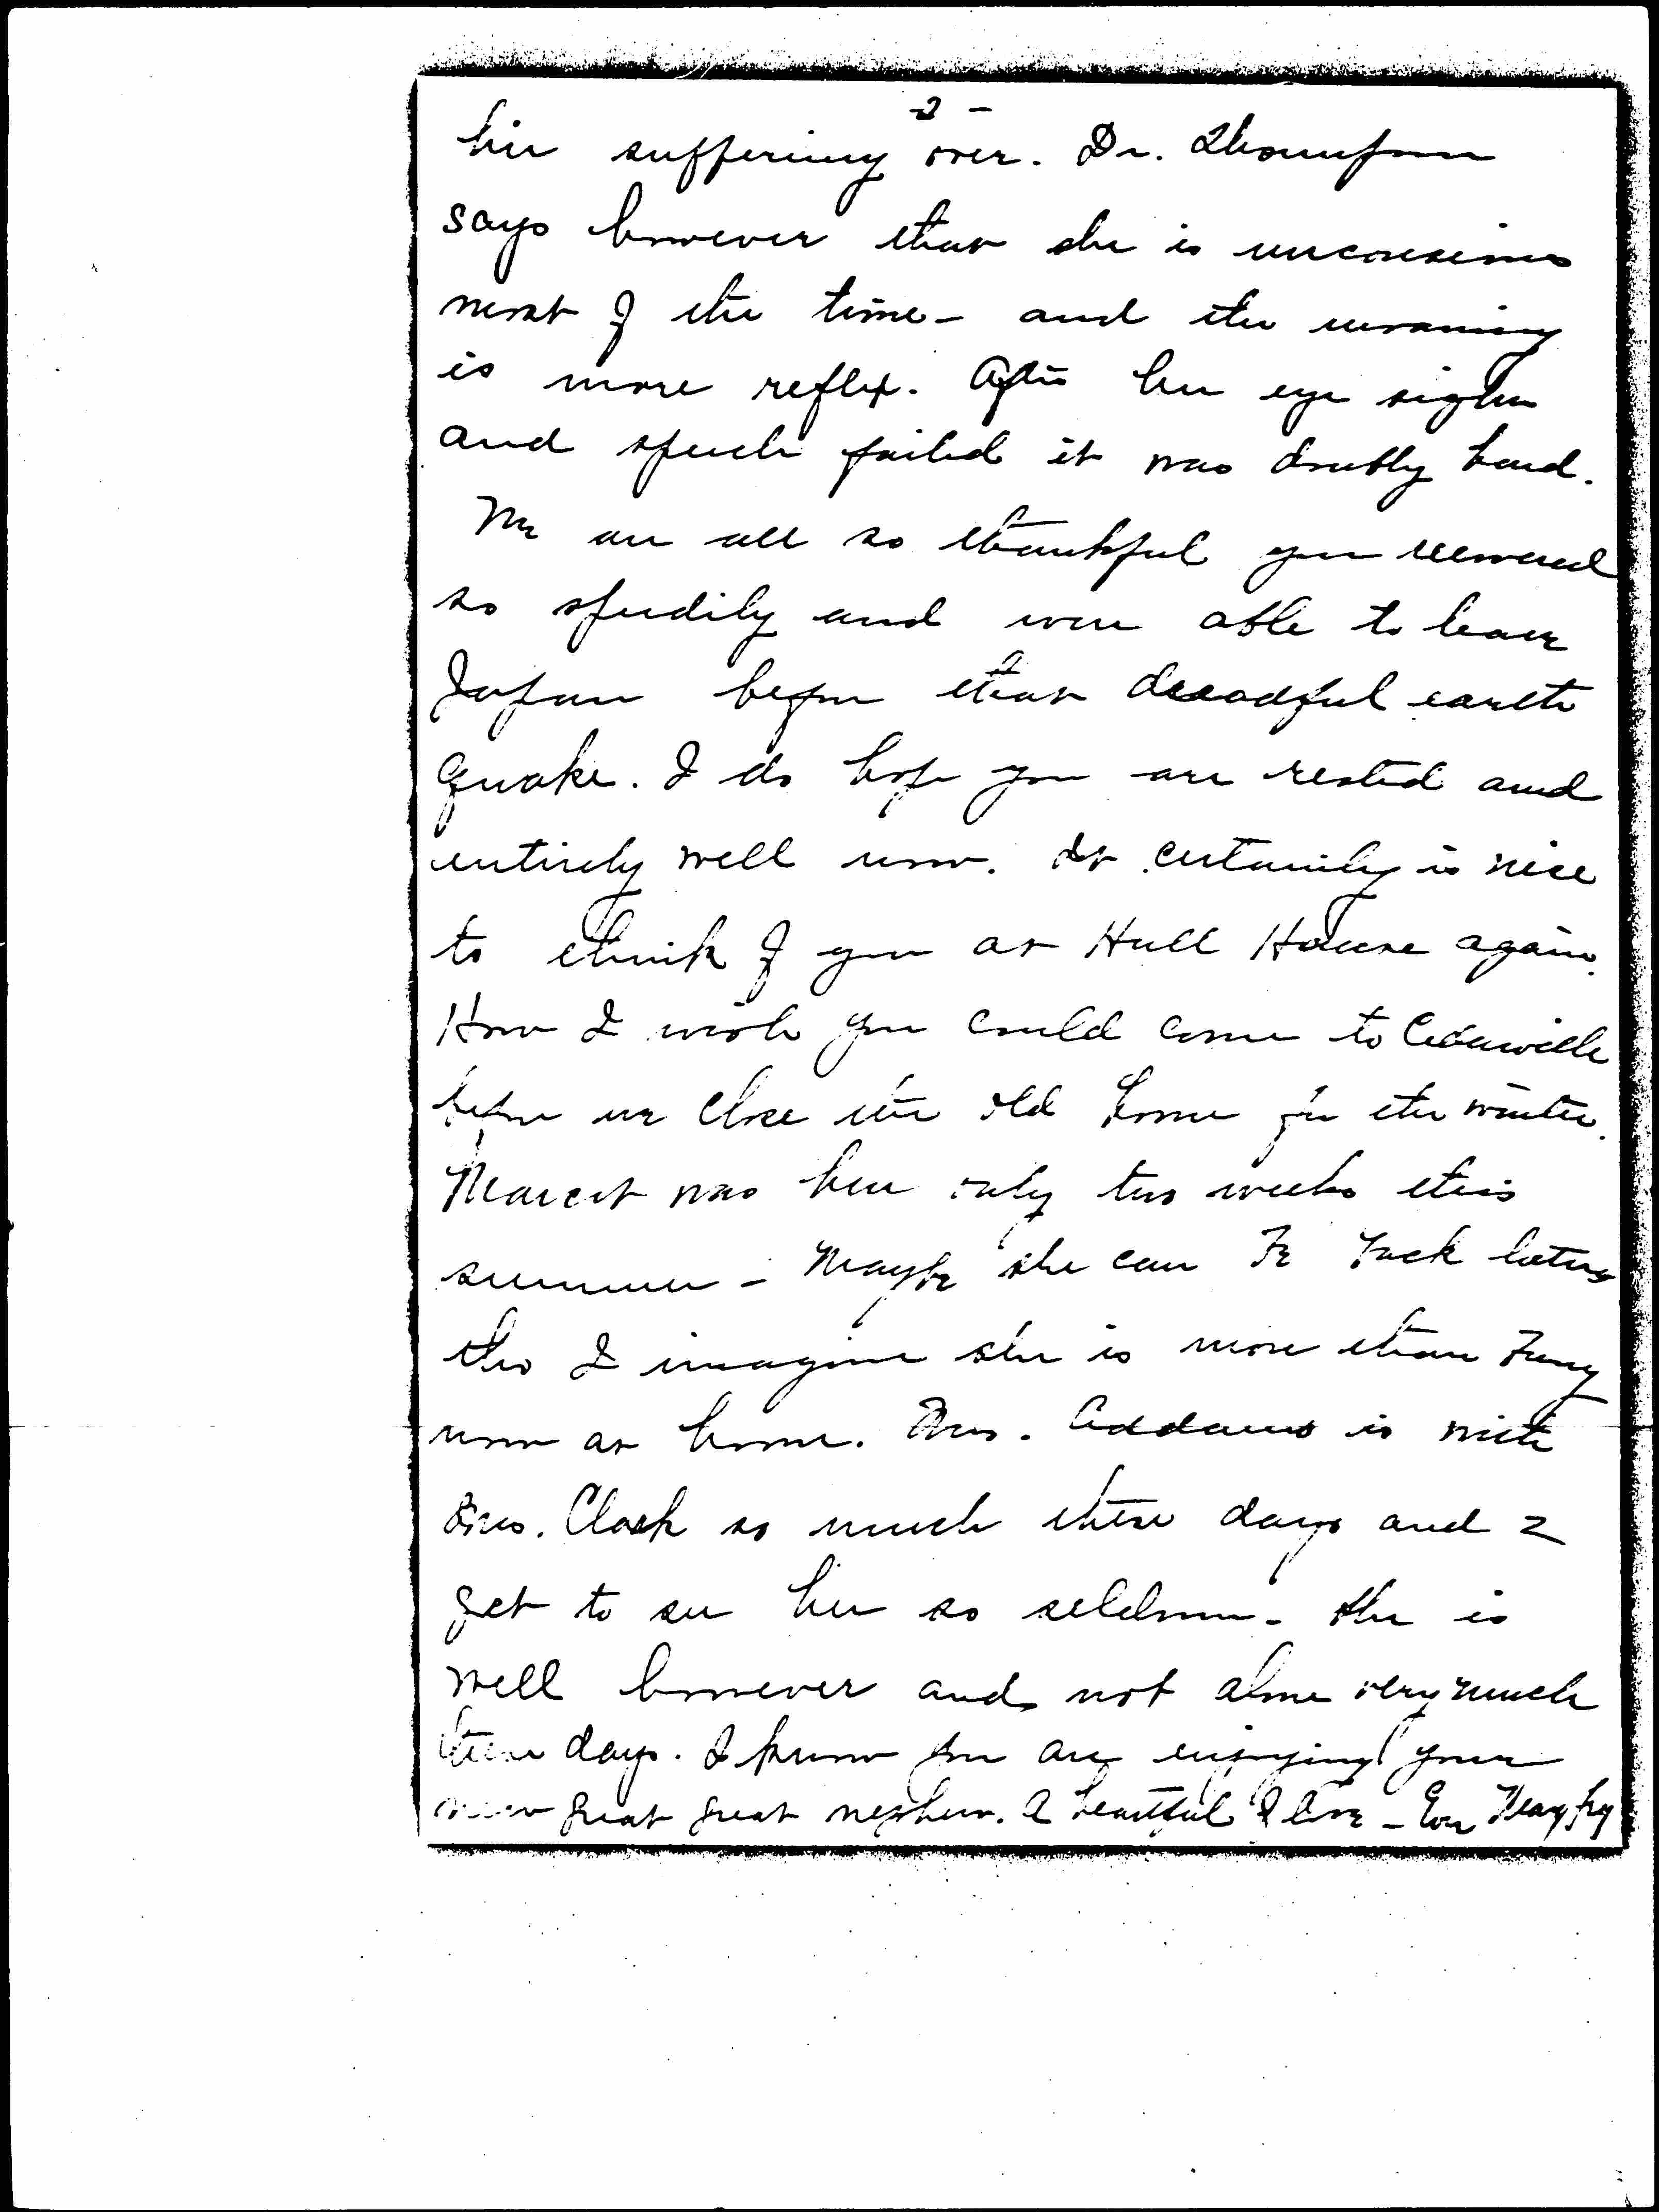 -2-
her suffering over. Dr. Thompson
says however that she is unconscious
most of the time - and the moaning
is more reflex. After her eye sight
and speech failed it was doubly hard.
We are all so thankful you recovered
so speedily and were able to leave
Japan before that dreadful earth
quake. I do hope you are rested and
entirely well now. It certainly is nice
to think of you at Hull House again.
How I wish you could come to Cedarville
before we close the old home for the winter.
Marcet was here only two weeks this
summer - Maybe she can be back later
tho I imagine she is more than busy
now at home. Mrs. Addams is with
Mrs. Clark so much these days and I
get to see her so seldom - She is
well however and not alone very much
these days. I know you are enjoying your
new great great nephew. A heartful of love - Ever Mary Fry